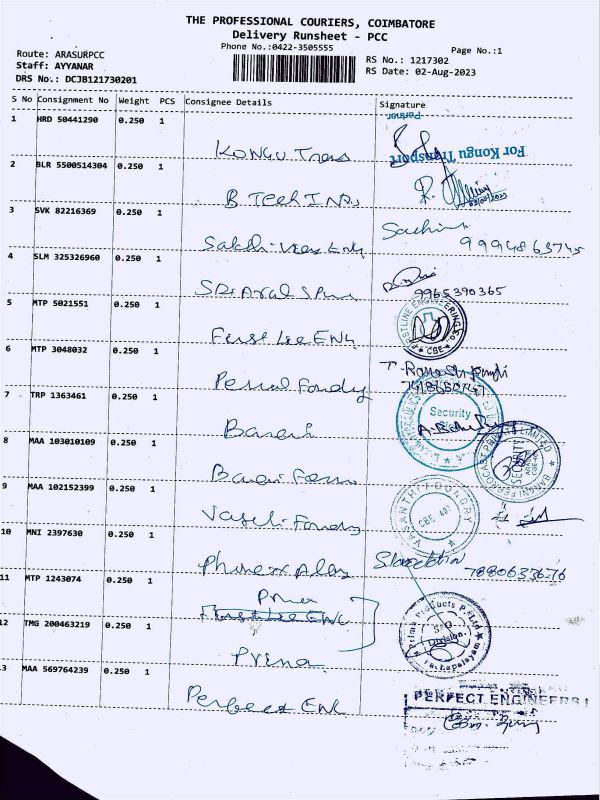 THE PROFESSIONAL COURIERS, COIMBATORE
Delivery Runsheet - PCC
Phone No.:0422-3505555
Page No.:1
Route: ARASURPCC
Staff: AYYANAR
DRS No.: DCJB121730201
RS No.: 1217302
RS Date: 02-Aug-2023
S No Consignment No Weight PCS Consignee Details Signature
1 HRD 50441290 0.250 1
Partner
For Kongu Transport
KONGU Trans
2 BLR 5500514304 0.250 1
B Tech INDs
3 SVK 82216369 0.250 1
Sachin
9994863745
Sakthi Eng
4 SLM 325326960 0.250 1
9965390365
SriAral Spin
5 MTP 5021551 0.250 1
FIRSTLINE ENGINEERING CO.
CBE
First Lee ENG
6 MTP 3048032 0.250 1
T. Ramesh
Foundry
7 TRP 1363461 0.250 1
Security
Banari
8 MAA 103010109 0.250 1
SECURITY
PRIVATE LIMITED
Banari
9 MAA 102152399 0.250 1
VASANTHI FOUNDRY
CBE 407
Foundry
10 MNI 2397630 0.250 1
7880633676
Phinexx Alloy
11 MTP 1243074 0.250 1
Prima
First Lee ENG
Prima Products P. Ltd
Division.
12 TMG 200463219 0.250 1
Prima
13 MAA 569764239 0.250 1
PERFECT ENGINEERS
Perfect ENG